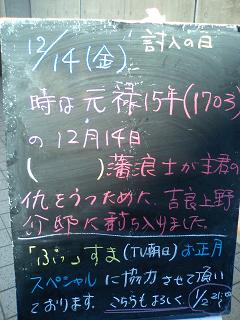 12/14(金) 討入の日
時は元禄15年(1703)
の12月14日
(　　　)藩浪士が主君の
仇をうつために、吉良上野
介邸に討ち入りました。
「ぷっ」すま(TV朝日)お正月
スペシャルに協力させて頂い
ております。こちらもよろしく